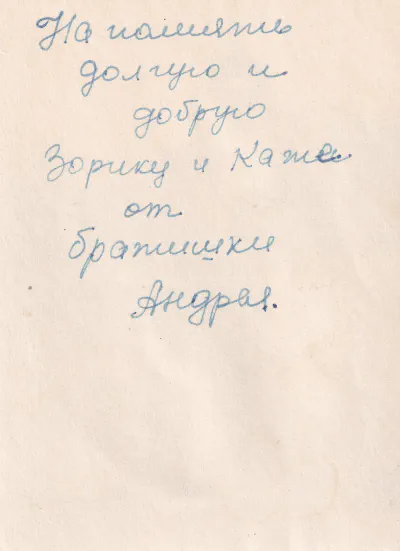 На память
долгую и
добрую
Зорику и Кате
от
братишки
Андрея.